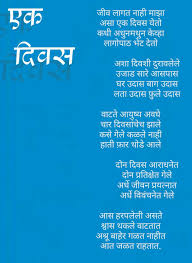 एक
दिवस
जीव लागत नाही माझा
असा एक दिवस येतो
कधी अधुनमधुन केव्हा
लागोपाठ भेट देतो
अशा दिवशी दुरावलेले
उजाड सारे आसपास
घर उदास बाग उदास
लता उदास फुले उदास
वाटते आयुष्य अवघे
चार दिवसांचेच झाले
कसे गेले कळले नाही
हाती फ़ार थोडे आले
दोन दिवस आराधनेत
दोन प्रतिक्षेत गेले
अर्धे जीवन प्रयत्नात
अर्धे विवंचनेत गेले
आस हरपलेली असते
श्वास थकले वाटतात
अश्रू बाहेर गळत नाहीत
आत जळत राहतात.